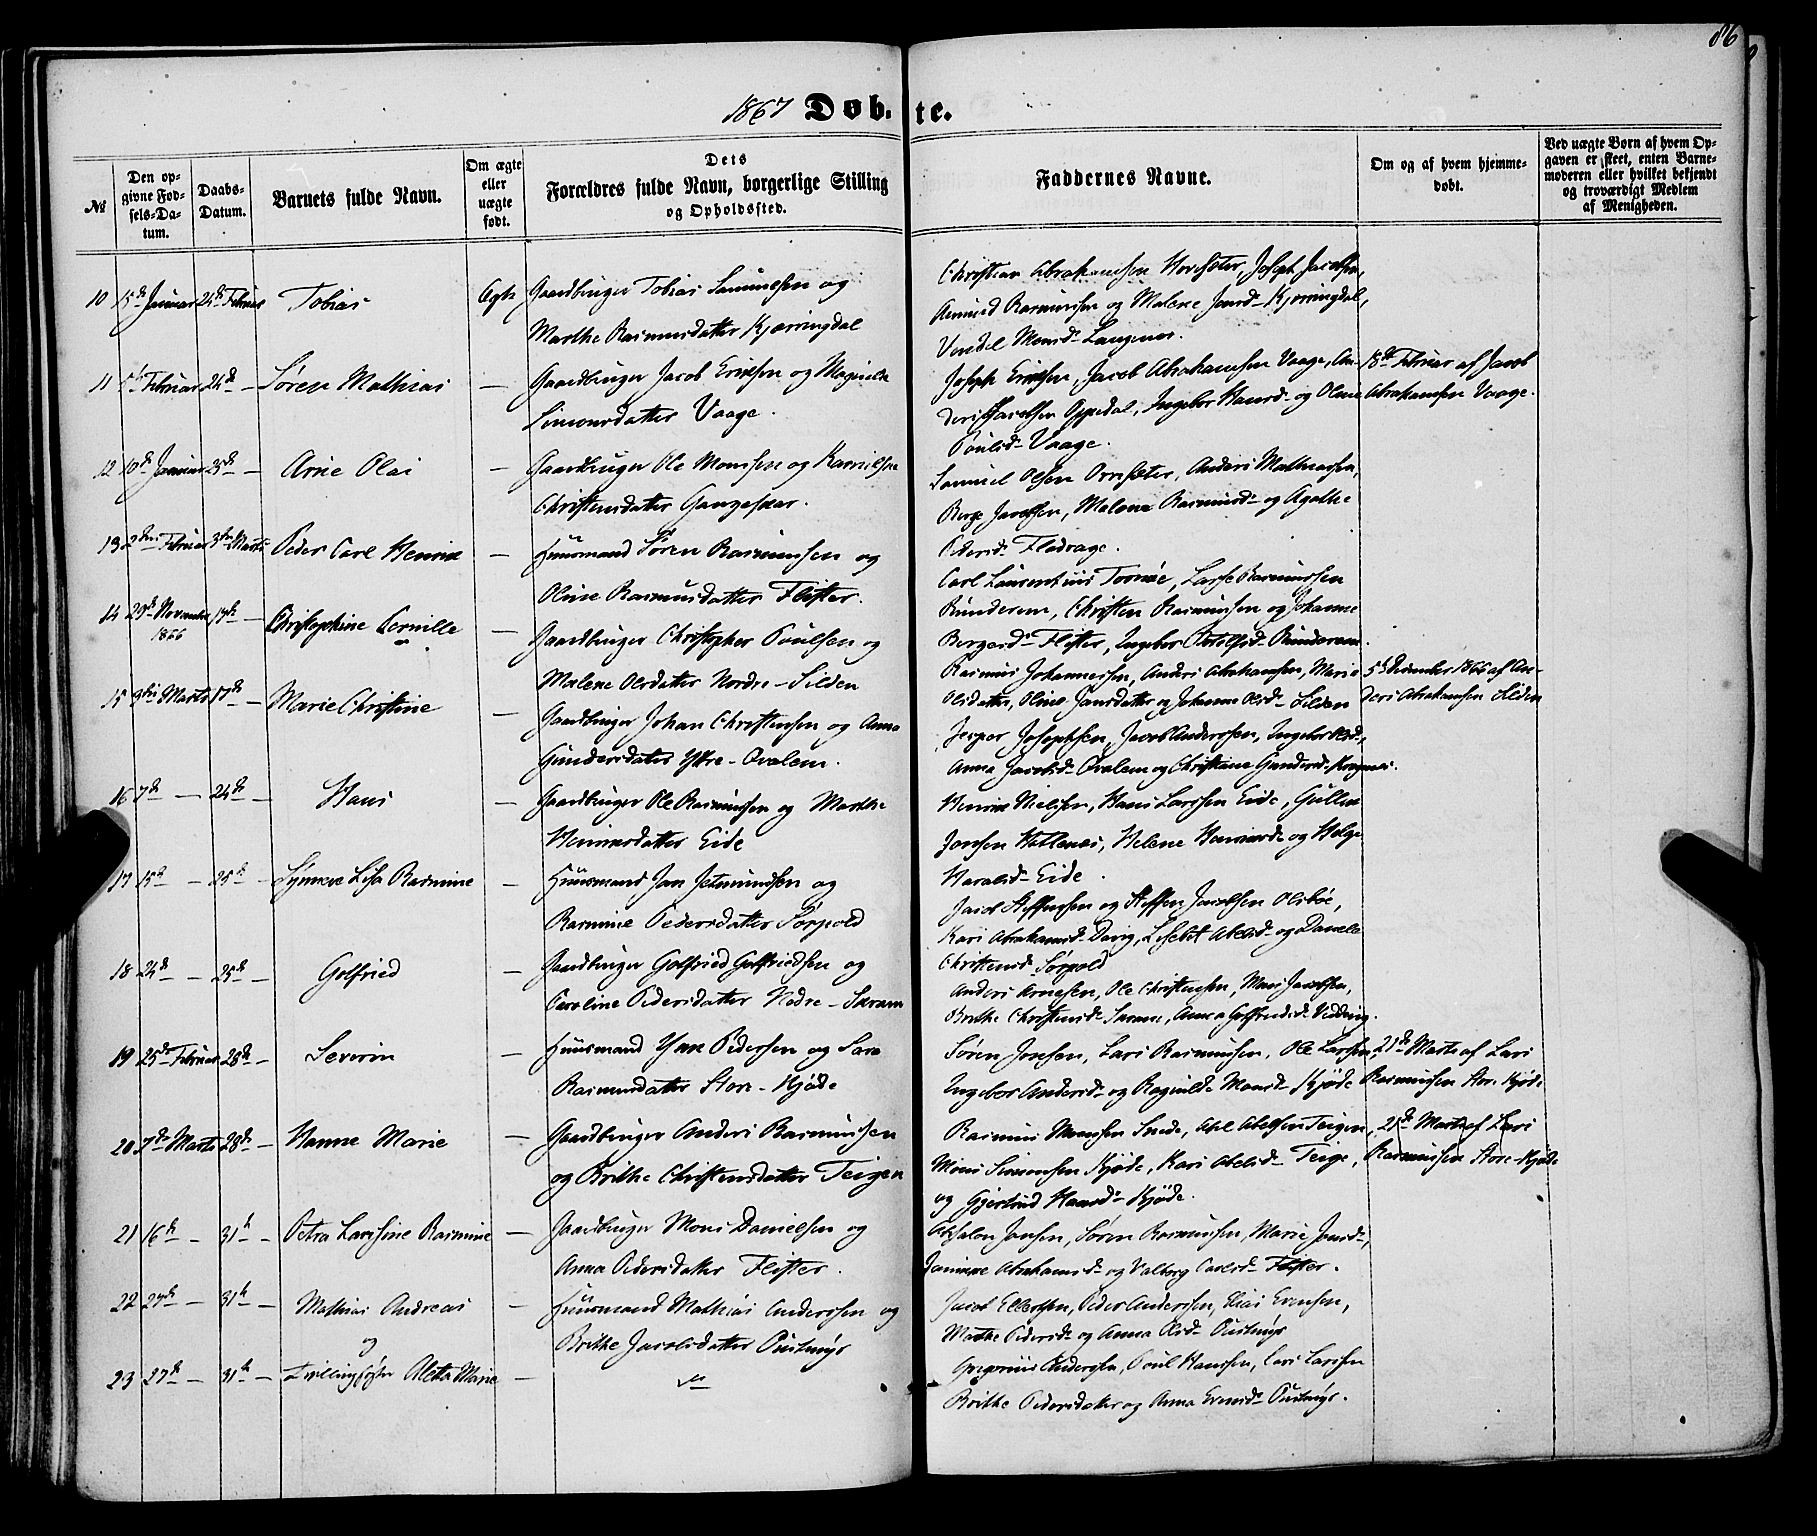 86
1867 Døb- te.
№
Den op-
givne Fød-
sels-Da-
tum.
Daabs-
Datum.
Barnets fulde Navn.
Om ægte
eller
uægte
født.
Dets
Forældres fulde Navn, borgerlige Stilling
og Opholdssted.
Faddernes Navne.
Om og af hvem hjemme-
døbt.
Ved uægte Børn af hvem Op-
gaven er skeet, enten Barne-
moderen eller hvilket bekjendt
og troværdigt Medlem
af Menigheden.
10 15de Januar 24de Februar Tobias Ægte Gaardbruger Tobias Samuelsen og
Marthe Rasmusdatter Kjørringdal
Christian Abrahamsen Hovsæter, Joseph Jacobsen,
Amund Rasmussen og Malene Jonsd- Kjørringdal,
Vendel Monsd- Langenes.
11 Februar 24de — Søren Mathias — Gaardbruger Jacob Ericksen og Magnille
Simonsdatter Vaage.
Joseph Ericksen, Jacob Abrahamsen Vaage, An-
ders Jacobsen Oppedal, Ingebor Hansd- og Oline
Poulsd- Vaage.
18de Februar af Jacob
Abrahamsen Vaage.
12 10de Januar 25de — Arne Olai — Gaardbruger Ole Monssen og Karnilske
Christensdatter Gangeskar.
Samuel Olsen Ornsæter, Anders Mathiassen,
Berge Jacobsen, Malene Rasmusd- og Agathe
Pedersd- Flodvage.
13 Februar 3die Marts Peder Carl Henrik — Huusmand Søren Rasmussen og
Oline Rasmusdatter Flister.
Carl Laurentius Tornøe, Lasse Rasmussen
Runderem, Christen Rasmussen og Johanne
Bergesd- Flister, Ingebor Runderem.
14 29de November
1866 17de — Christophine Pernille — Gaardbruger Christopher Poulsen og
Malene Olsdatter Nordre-Silden
Rasmus Johannessen, Anders Abrahamsen, Marie
Olsdatter, Oline Jansdatter og Johanne Olsd- Silden
5te December 1866 af An-
ders Abrahamsen Silden
15 Marts 17de — Marie Christine — Gaardbruger Johan Christensen og Anna
Gundersdatter Ytre-Ovalem.
Jesper Josephsen, Jacob Anderssen, Ingebor Olsd-,
Anna Jacobsd- Ovalem og Christiane Gundersd-
16 7de — 24de — Hans — Gaardbruger Ole Rasmussen og Marthe
Henriksdatter Eide
Henrik Nielsen, Hans Larssen Eide, Gullik
Jonsen Hatlenes, Helene Henriksd- og Helge
Haralsd- Eide.
17 15de — 25de — Synneve Lisa Rasmine — Huusmand Jan Jetmundsen og
Rasmine Pedersdatter Sørpold
Jacob Steffensen og Steffen Jacobsen Olsbøe,
Kari Abrahamsd- Davig, Lisebet Abelsd- og Danele
Christensd- Sørpold
18 24de — 25de — Golfried — Gaardbruger Golfried Golfriedsen og
Caroline Pedersdatter Nedre-Skram
Anders Arnesen, Ole Christensen, Mons Jacobsen,
Brithe Christensd- Skram, Anna Golfriedsd- Vedvig.
19 25de Februar 28de — Severin — Huusmand Yver Pedersen og Sara
Rasmusdatter Store-Kjøde
Søren Jonsen, Lars Rasmussen, Ole Larssen,
Ingebor Andersd- og Ragnilde Monsd- Kjøde
21de Marts af Lars
Rasmussen Store Kjøde
20 7de Marts 28de — Hanne Marie — Gaardbruger Anders Rasmussen
og Brithe Christensdatter Teigen
Rasmus Monsen Snede, Abel Abelsen Teigen,
Mons Simonsen Kjøde, Kari Abelsd- Teige,
og Gjertrud Hansd- Kjøde.
21de Marts af Lars
Rasmussen Store-Kjøde
21 16de — 31te — Petra Larsine Rasmine — Gaardbruger Mons Danielsen og
Anna Pedersdatter Flister.
Absalon Jansen, Søren Rasmussen, Marie Jonsd-,
Janikke Abrahamsd- og Valborg Carlsd- Flister.
22 27de — 31te — Mathias Andreas — Huusmand Mathias Anderssen og
Brithe Jacobsdatter Pustmyr
Jacob Ellertsen, Peder Anderssen, Elias Evensen,
Marthe Pedersd- og Anna Olsd- Pustmyr
og
23 27de — 31te — Tvillingsøster Aletta Marie — 
Gregorius Anderssen, Poul Hanssen, Lars Larssen
Brithe Pedersdatter og Anna Evensd- Pustmyr.